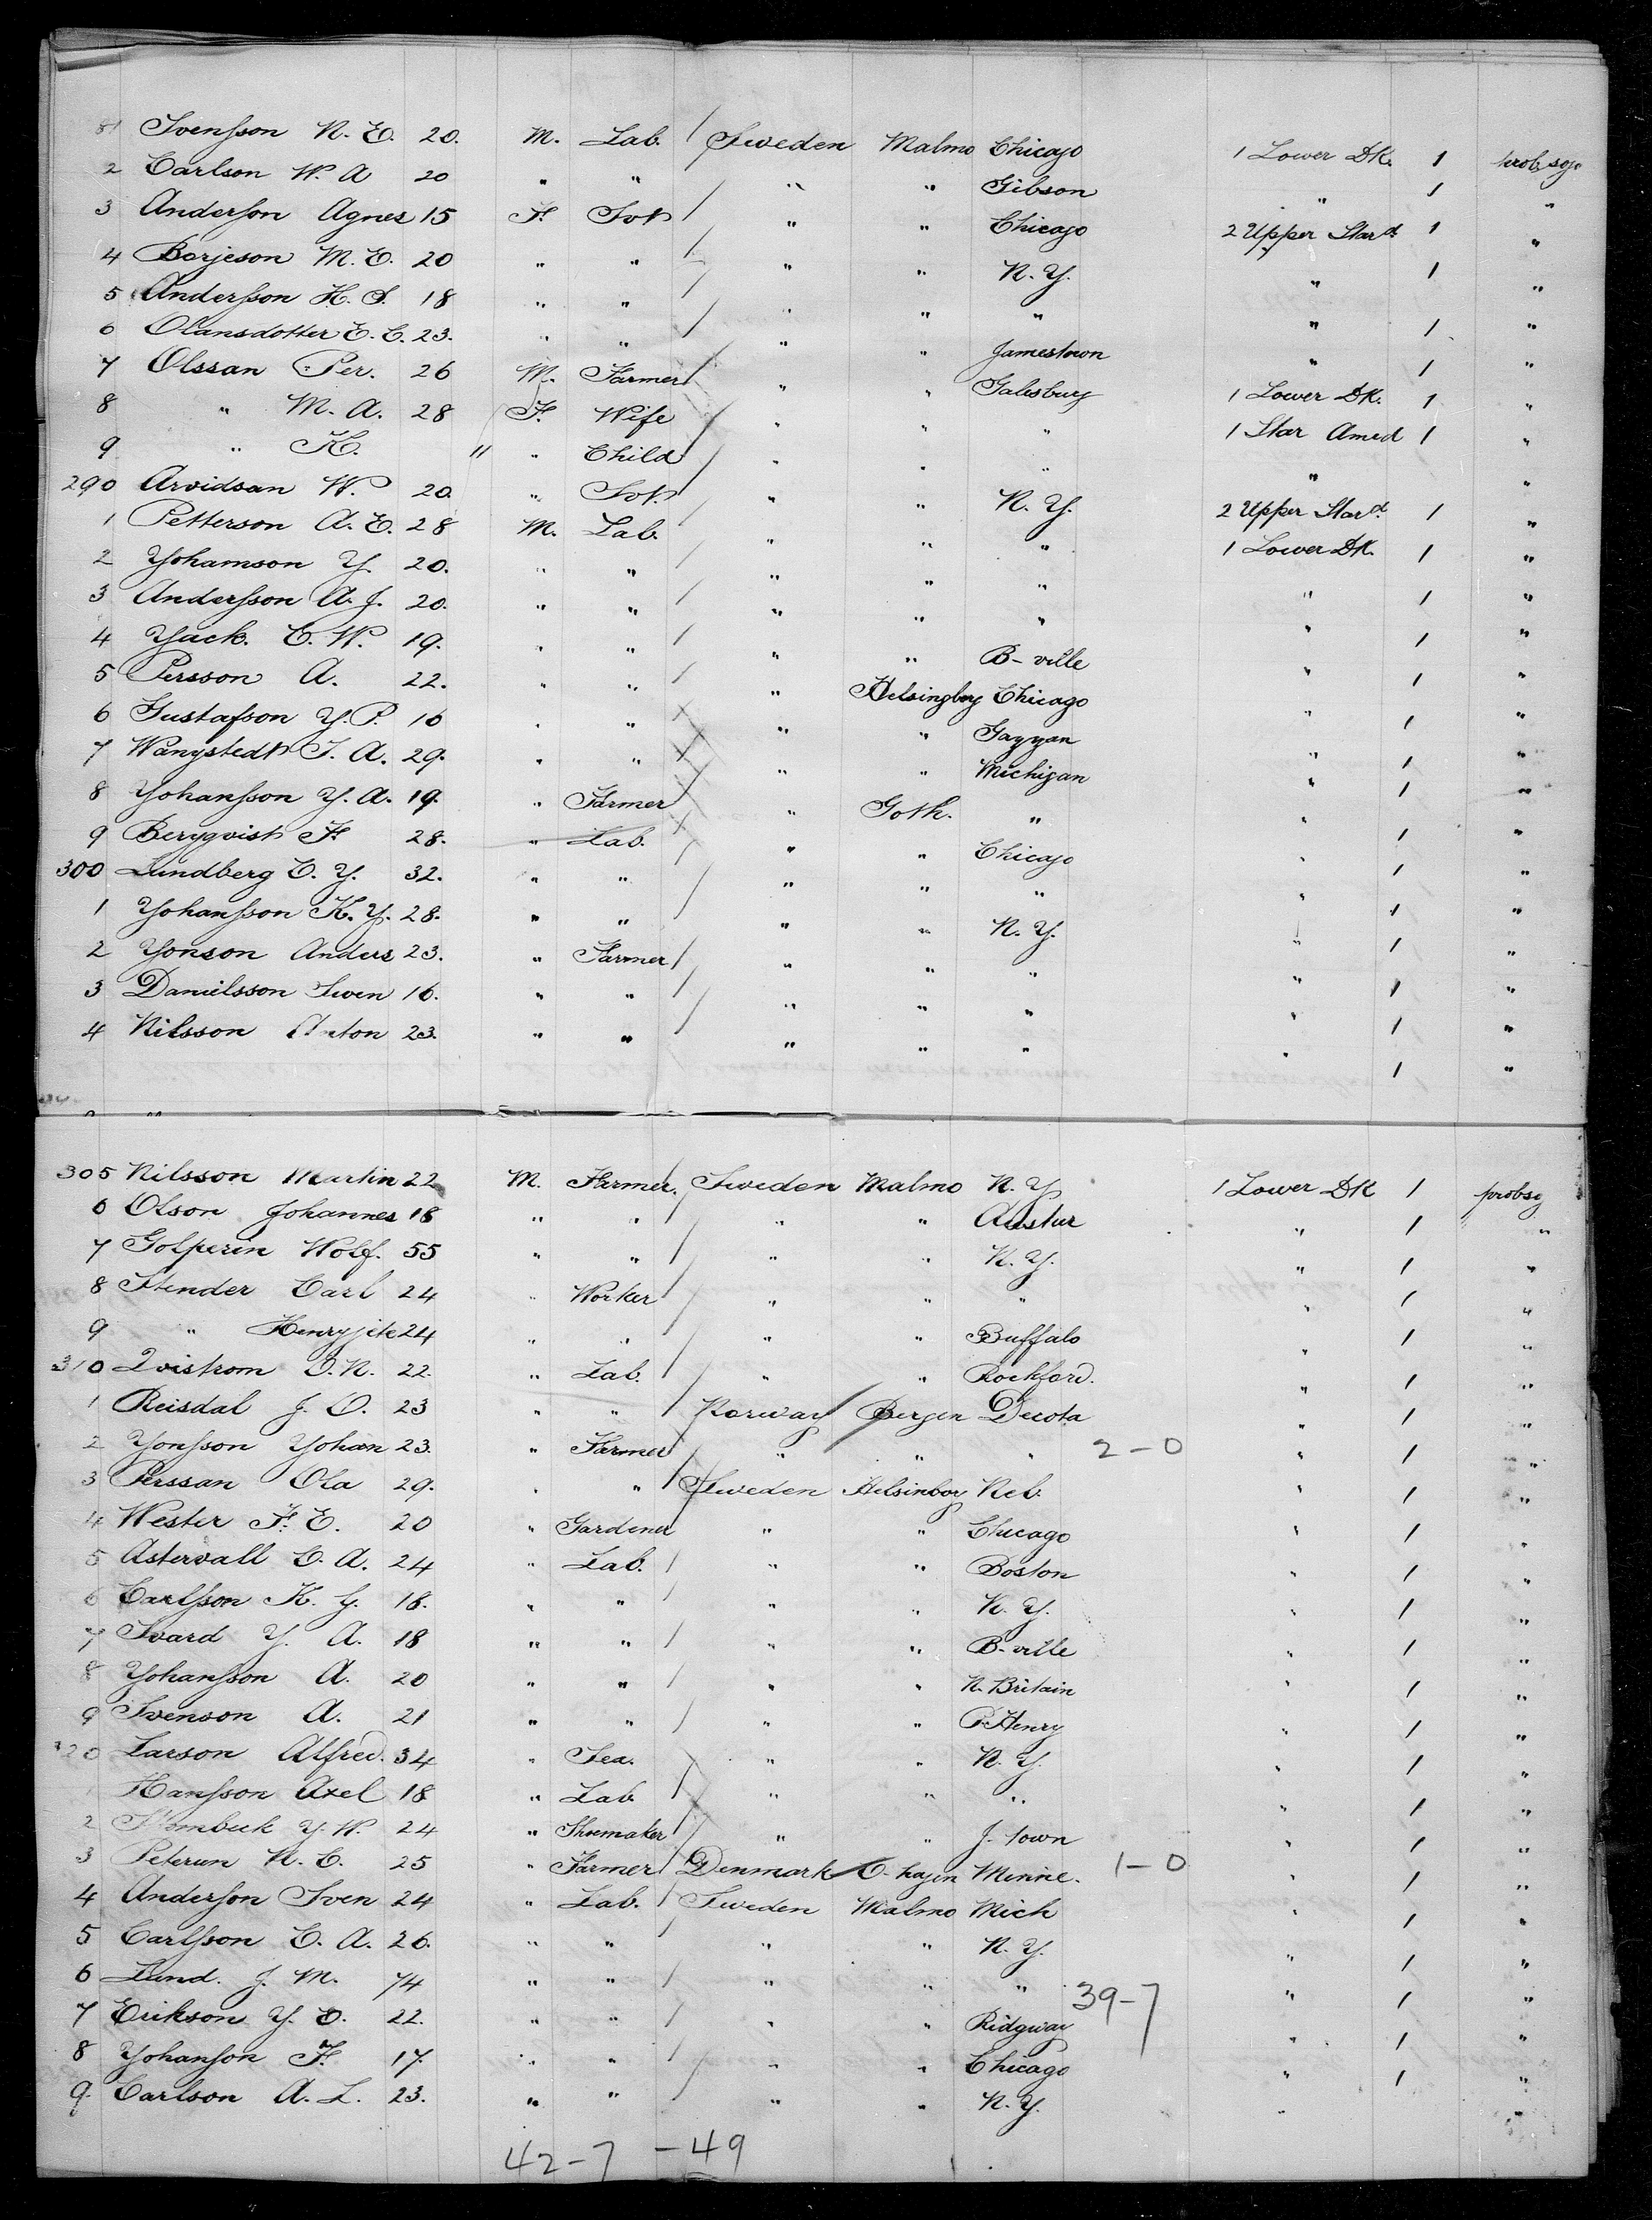 81 Svensson N. E. 20. M. Lab. Sweden Malmo Chicago 1 Lower DK. 1 prob. soj
2 Carlson W. A 20 " " " " Gibson " 1 "
3 Anderson Agnes 15 F. Svt " " Chicago 2 Upper Star d. 1 "
4 Borjeson M. E. 20 " " " " N. Y. " 1 "
5 Andersson H. S. 18 " " " " " " 1 "
6 Olansdotter E. C. 23. " " " " Jamestown " 1 "
7 Olssan Per. 26 M. Farmer " " Galesburg 1 Lower DK. 1 "
8 " M. A. 28 F. Wife " " " 1 Star Amid 1 "
9 " K. 11 " Child " " " " "
290 Arvidsan W. 20. " Svt. " " N. Y. 2 Upper Star d. 1 "
1 Petterson A. E. 28 M. Lab. " " " 1 Lower DK. 1 "
2 Yohamson Y. 20. " " " " " " 1 "
3 Andersson A. J. 20. " " " " " " 1 "
4 Yack. C. W. 19. " " " " B-ville " 1 "
5 Persson A. 22. " " " Helsingborg Chicago " 1 "
6 Gustafson Y. P. 16 " " " " " 1 "
7 Wangstedt J. A. 29. " " " " Michigan " 1 "
8 Yohansson Y. A. 19. " Farmer " Goth. " " 1 "
9 Bergqvist F. 28. " Lab. " " Chicago " 1 "
300 Lundberg C. Y. 32. " " " " " " 1 "
1 Yohansson K. Y. 28. " " " " N. Y. " 1 "
2 Yonson Anders 23. " Farmer " " " " 1 "
3 Danielsson Swen 16. " " " " " " 1 "
4 Nilsson Anton 23. " " " " " " 1 "
305 Nilsson Martin 22 M. Farmer. Sweden Malmo N. Y. 1 Lower DK 1 probsy
6 Olson Johannes 18 " " " " " 1 "
7 Golperin Wolf. 55 " " " " N. Y. " 1 "
8 Stender Carl 24 " Worker " " " " 1 "
9 " Henryjite 24 " " " " Buffalo " 1 "
310 Qvistrom O. N. 22. " Lab. " " Rockford. " 1 "
1 Reisdal J. O. 23 " " Norway Bergen Decota " 1 "
2 Yonsson Yohan 23. " Farmer " " " 2-0 " 1 "
3 Perssan Ola 29. " " Sweden Helsinborg Neb. " 1 "
4 Wester F. E. 20 " Gardener " " Chicago " 1 "
5 Astervall C. A. 24 " Lab. " " Boston " 1 "
6 Carlsson K. G. 18. " " " " N. Y. " 1 "
7 Svard Y. A. 18 " " " " B-ville " 1 "
8 Yohansson A. 20 " " " " N. Britain " 1 "
9 Svenson A. 21 " " " " P. Henry " 1 "
320 Larson Alfred. 34 " Sea. " " N. Y. " 1 "
Hansson Axel 18 " Lab. " " " " 1 "
2 Y. W. 24 " Shoemaker " " J. town " 1 "
3 Peterun N. C. 25 " Farmer Denmark C-hagen Minne. 1-0 " 1 "
4 Anderson Sven 24 " Lab. Sweden Malmo Mich " 1 "
5 Carlsson C. A. 26. " " " " N. Y. " 1 "
6 Lund. J. M. 74 " " " " " 39-7 " 1 "
7 Erikson Y. E. 22. " " " " Ridgway " 1 "
8 Yohanson F. 17. " " " " Chicago " 1 "
9. Carlson A. L. 23. " " " " N. Y. " "
42-7 -49